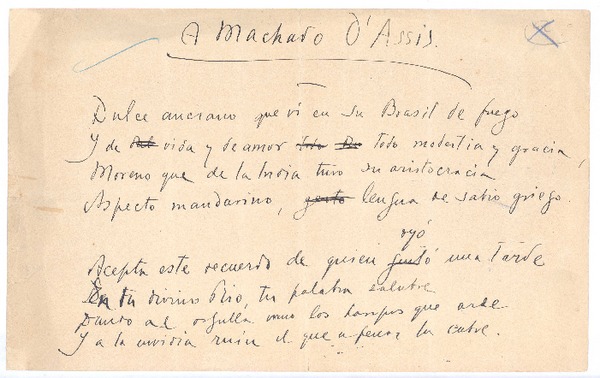 A Machado D'Assis.
Dulce anciano que vi en su Brasil de fuego
Y de vida y de amor todo modestia y gracia,
Moreno que de la India tuvo su aristocracia
Aspecto mandarino, lengua de sabio griego.
oyó
Acepta este recuerdo de quien una tarde
En tu divino Rio, tu palabra salubre
Dando al orgullo como los que arde
Y a la envidia ruin el que apenas la cubre.